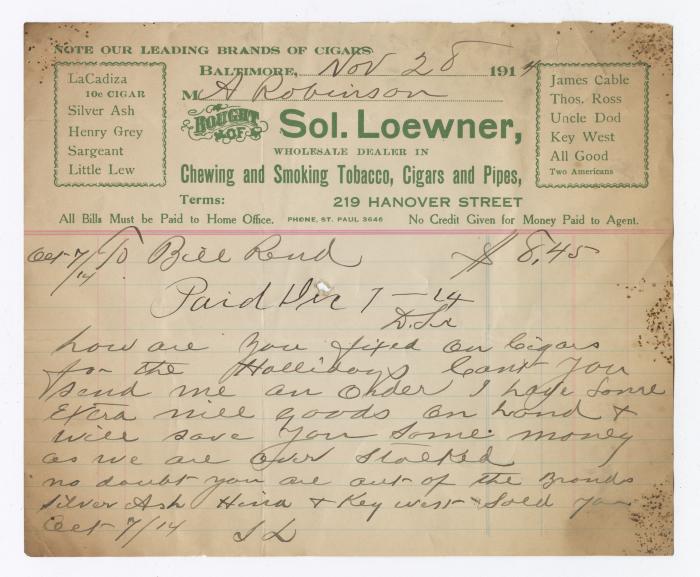 NOTE OUR LEADING BRANDS OF CIGARS
BALTIMORE, Nov 28 1914
M A Robinson
LaCadiza
10c CIGAR
Silver Ash
Henry Grey
Sargeant
Little Lew
BOUGHT OF
Sol. Loewner,
WHOLESALE DEALER IN
Chewing and Smoking Tobacco, Cigars and Pipes,
Terms: 219 HANOVER STREET
James Cable
Thos. Ross
Uncle Dod
Key West
All Good
Two Americans
All Bills Must be Paid to Home Office. PHONE, ST. PAUL 3646 No Credit Given for Money Paid to Agent.
Oct 7/14 To Bill Rend $ 8,45
Paid Dec 7 - 14
how are you fixed on Cigars
for the Hollidays Cant you
send me an order I have some
Extra nice goods on hand &
will save you some money
as we are over stocked
no doubt you are out of the Brands
Silver Ash & Key west Sold you
Oct 7/14 S L